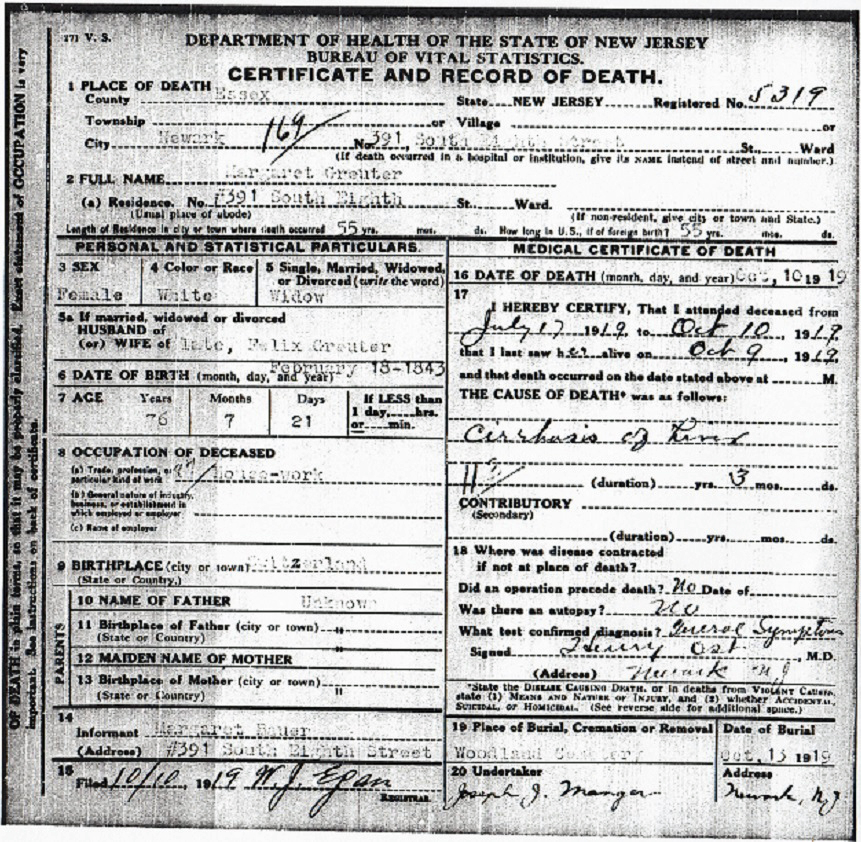 171 V. S.
DEPARTMENT OF HEALTH OF THE STATE OF NEW JERSEY
BUREAU OF VITAL STATISTICS.
CERTIFICATE AND RECORD OF DEATH.
1 PLACE OF DEATH
County Essex State NEW JERSEY Registered No. 5319
Township or Village or
City Newark 169 No. 391, South Eighth Street St., Ward
(If death occurred in a hospital or institution, give its NAME instead of street and number.)
2 FULL NAME Margaret Greuter
(a) Residence. No. #391 South Eighth St. Ward.
(Usual place of abode) (If non-resident, give city or town and State.)
Length of Residence in city or town where death occurred 55 yrs. mos. ds. How long in U.S., if of foreign birth? 55 yrs. mos. ds.
PERSONAL AND STATISTICAL PARTICULARS.
3 SEX 4 Color or Race 5 Single, Married, Widowed, or Divorced (write the word)
Female White Widow
5a If married, widowed or divorced
HUSBAND of
(or) WIFE of late, Felix Greuter
6 DATE OF BIRTH (month, day, and year) February 18-1843
7 AGE Years Months Days If LESS than
1 day,....hrs.
or....min.
76 7 21
8 OCCUPATION OF DECEASED
(a) Trade, profession, or
particular kind of work house-work
(b) General nature of industry,
business, or establishment in
which employed or employer
(c) Name of employer
9 BIRTHPLACE (city or town) Switzerland
(State or Country.)
PARENTS
10 NAME OF FATHER Unknown
11 Birthplace of Father (city or town) "
(State or Country)
12 MAIDEN NAME OF MOTHER "
13 Birthplace of Mother (city or town)
(State or Country) "
14
Informant Margaret
(Address) #391 South Eighth Street
15 Filed 10/10, 1919 W. J. Egan
REGISTRAR.
MEDICAL CERTIFICATE OF DEATH
16 DATE OF DEATH (month, day, and year) Oct, 10 19 19
17
I HEREBY CERTIFY, That I attended deceased from
July 17 1919 to Oct 10, 1919
that I last saw her alive on Oct 9, 1919
and that death occurred on the date stated above at M.
THE CAUSE OF DEATH* was as follows:
Cirrhosis of Liver
(duration) yrs. 3 mos. ds.
CONTRIBUTORY
(Secondary)
(duration) yrs. mos. ds.
18 Where was disease contracted
if not at place of death?
Did an operation precede death? No Date of
Was there an autopsy? No
What test confirmed diagnosis? Symptoms
Signed Henry Ost, M.D.
(Address) Newark NJ
*State the DISEASE CAUSING DEATH, or in deaths from VIOLENT CAUSES,
state (1) MEANS AND NATURE OF INJURY, and (2) whether ACCIDENTAL,
SUICIDAL, or HOMICIDAL. (See reverse side for additional space.)
19 Place of Burial, Cremation or Removal Date of Burial
Woodland Cemetery Oct, 13 1919
20 Undertaker Address
Joseph J. Manger Newark, NJ
OF DEATH in plain terms, so that it may be properly classified. Exact statement of OCCUPATION is very
important. See instructions on back of certificate.